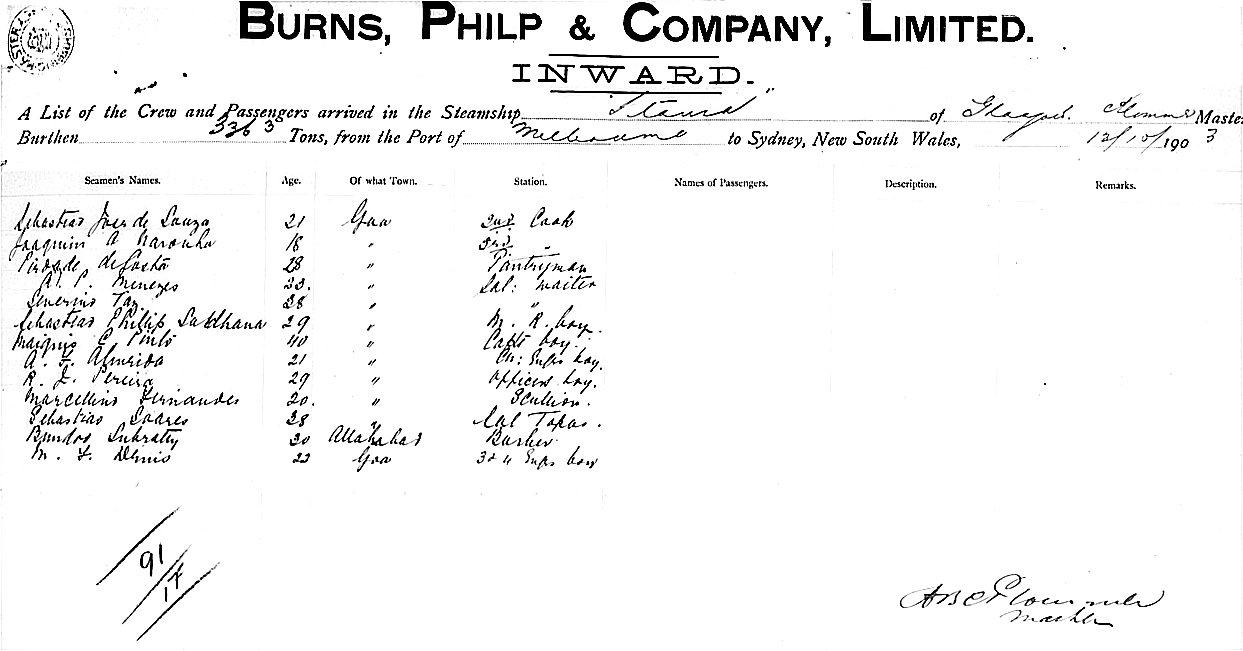 BURNS, PHILP & COMPANY, LIMITED.
INWARD.
A List of the Crew and Passengers arrived in the Steamship "Itaura" of Glasgow Plummer Master
Burthen 3363 Tons, from the Port of Melbourne to Sydney, New South Wales, 12/10/1903
Seamen's Names. Age. Of what Town. Station. Names of Passengers. Description. Remarks.
Sebastiao Jose de Souza 21 Goa 2nd Cook
Joaquim A Naronha 18 " 3rd "
de Costa 28 " Pantryman
P. Menezes 23. " Sal: waiter
Severino Vaz 28 " "
Sebastiao Phillip Saldhana 29 " M. R. boy.
C Pinto 40 " Capts boy.
A. F. Almeida 21 " Ch: Engrs boy.
R. J. Pereira 29 " Officers boy.
Marcellino Fernandes 20. " Scullion.
Sebastiao Soares 38 " Topas.
30 Allahabad Barber
M. F. Denis 22 Goa 3rd " Engrs boy
91/17
A B C Plummer
Master